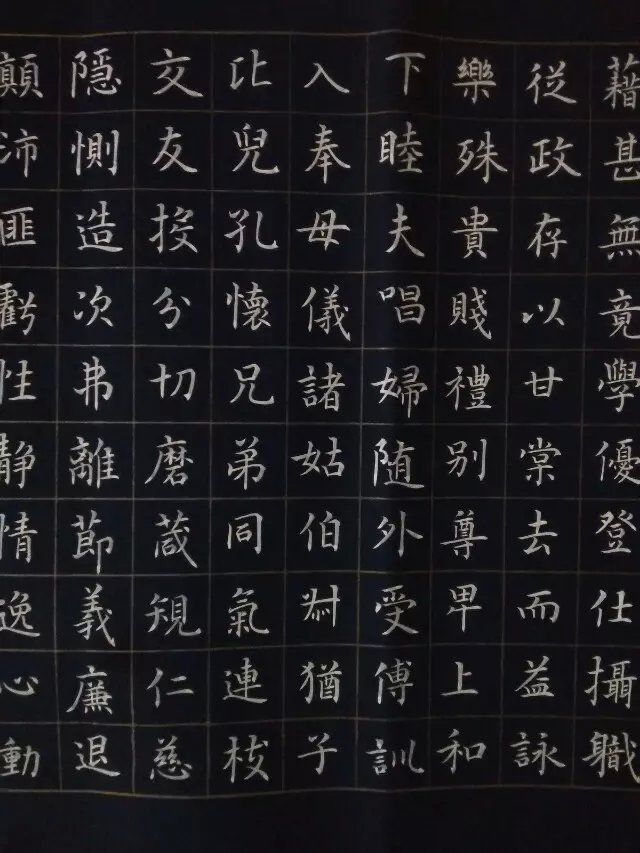 藉甚無竟學優登仕攝職
從政存以甘棠去而益詠
樂殊貴賤禮別尊卑上和
下睦夫唱婦随外受傅訓
入奉母儀諸姑伯叔猶子
比兒孔懷兄弟同氣連枝
交友投分切磨葴規仁慈
隱惻造次弗離節義廉退
顛沛匪虧性靜情逸心動